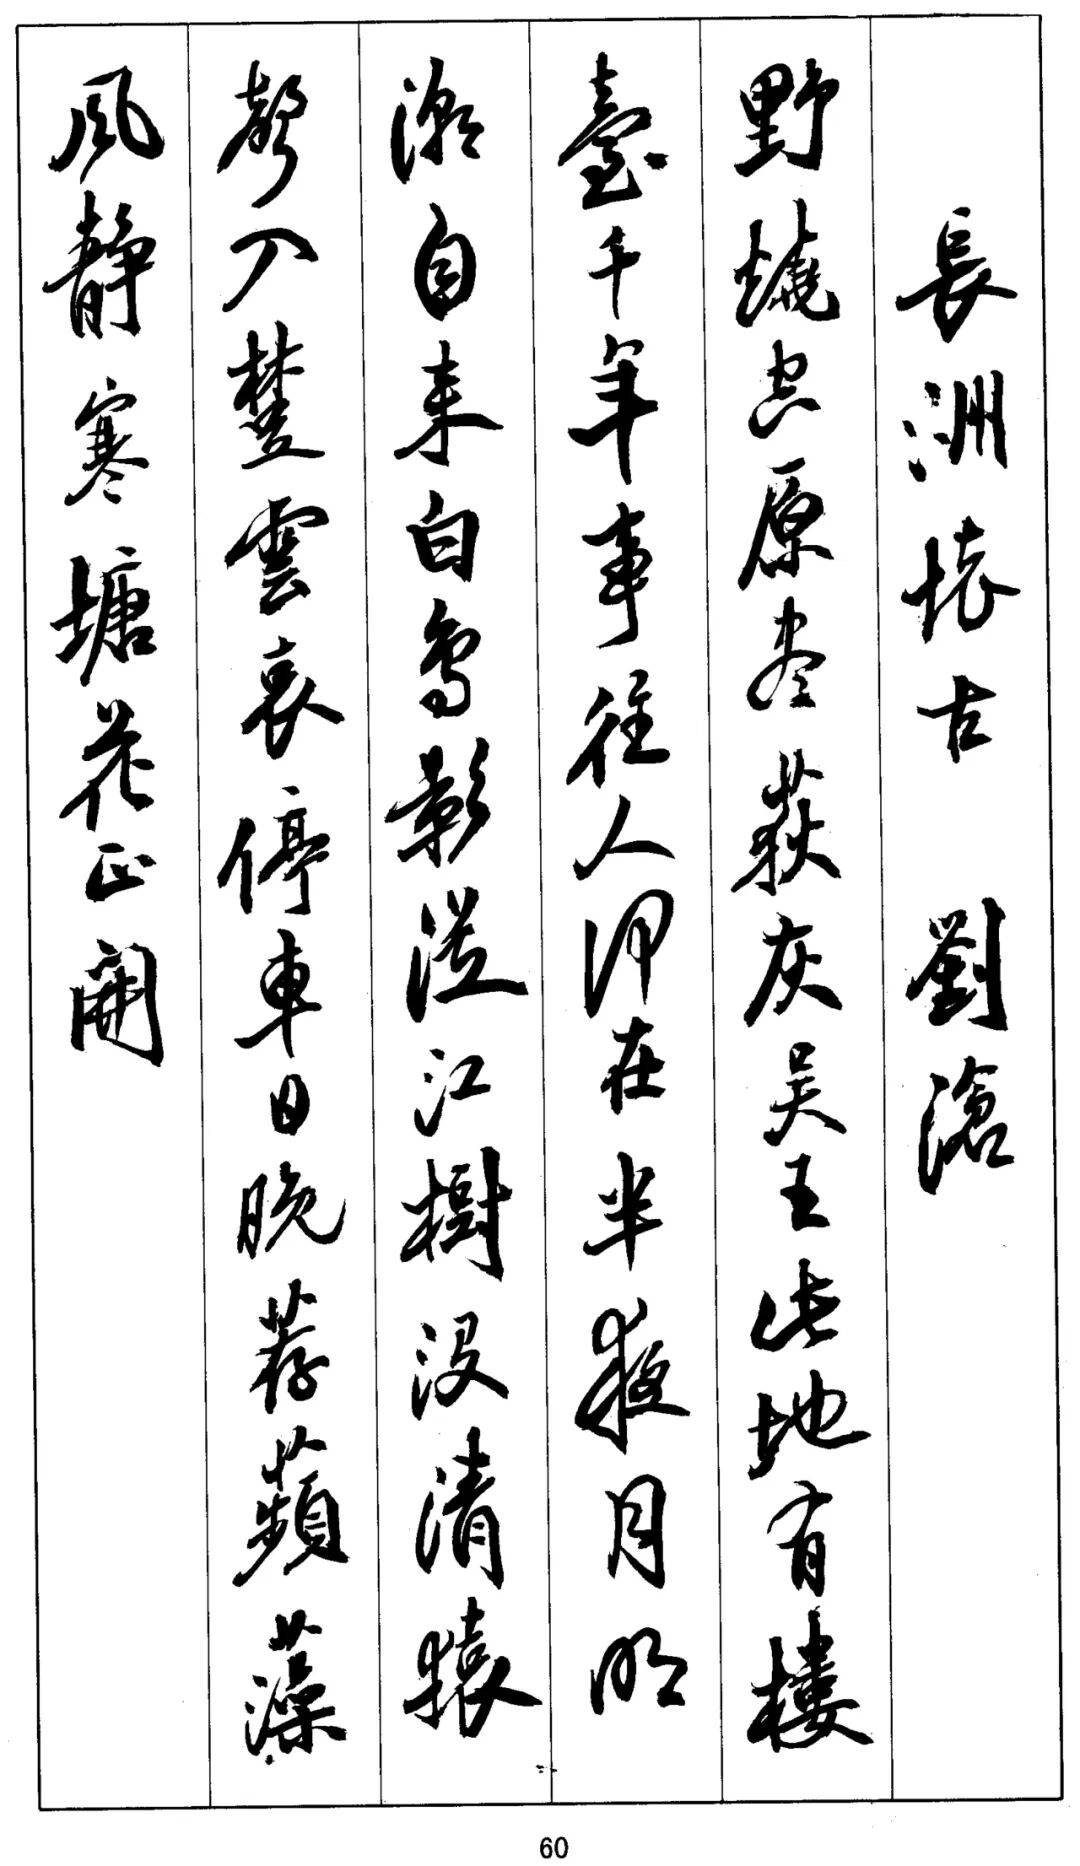 長洲懷古 劉滄
野燒空原盡荻灰吳王此地有樓
臺千年事往人何在半夜月明
潮自来白鳥影從江樹没清猿
聲入楚雲哀停車日晚荐蘋藻
風静寒塘花正開
60